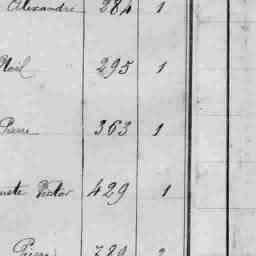 Alexandre 284 1
Noël 295 1
Pierre 363 1
Victor 429 1
Pierre 789 2